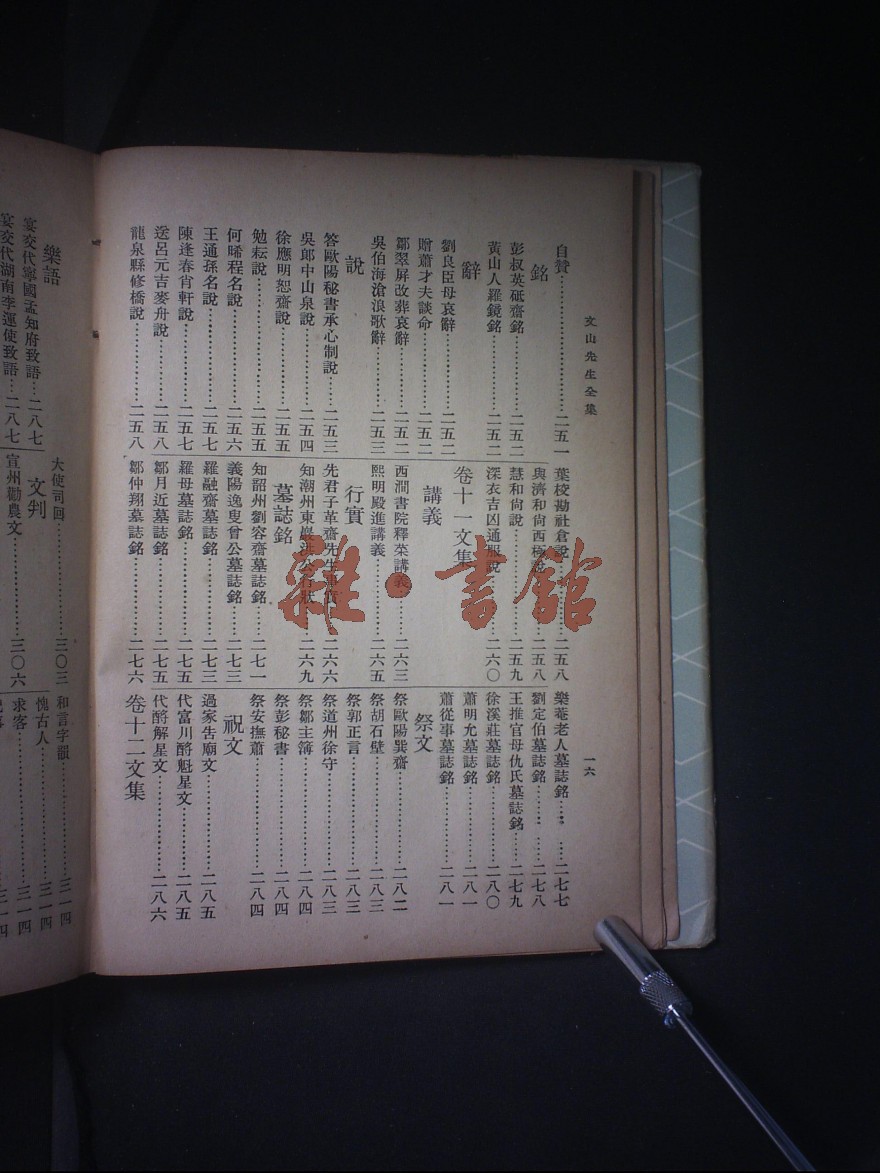 文山先生全集
一六
自贊……二五一
銘
彭叔英砥齋銘……二五二
黃山人羅鏡銘……二五二
辭
劉良臣母哀辭……二五二
贈蕭才夫談命……二五二
鄒翠屏改葬哀辭……二五二
吳伯海滄浪歌辭……二五三
說
答歐陽秘書承心制說……二五三
吳郎中山泉說……二五四
徐應明恕齋說……二五五
勉耘說……二五五
何晞程名說……二五六
王通孫名說……二五七
陳逢春肖軒說……二五七
送呂元吉麥舟說……二五八
龍泉縣修橋說……二五八
葉校勘社倉說……二五八
與濟和尚西極說……二五八
慧和尚說……二五九
深衣吉凶通服說……二六〇
卷十一文集
講義
西澗書院釋菜講義……二六三
熙明殿進講義……二六五
行實
先君子革齋先生事實……二六六
知潮州東巖洪公行狀……二六九
墓誌銘
知韶州劉容齋墓誌銘……二七一
義陽逸叟曾公墓誌銘……二七三
羅融齋墓誌銘……二七三
羅母墓誌銘……二七五
鄒月近墓誌銘……二七五
鄒仲翔墓誌銘……二七六
樂菴老人墓誌銘……二七七
劉定伯墓誌銘……二七八
王推官母仇氏墓誌銘……二七九
徐溪莊墓誌銘……二八〇
蕭明允墓誌銘……二八一
蕭從事墓誌銘……二八一
祭文
祭歐陽巽齋……二八二
祭胡石壁……二八三
祭郭正言……二八三
祭道州徐守……二八三
祭鄒主簿……二八四
祭彭秘書……二八四
祭安撫蕭……二八四
祝文
過家告廟文……二八五
代富川酹魁星文……二八五
代酹解星文……二八六
卷十二文集
樂語
宴交代寧國孟知府致語……二八七
宴交代湖南李運使致語……二八七
大使司回……三〇三
文判
宣州勸農文……三〇六
和言字韻……三一四
愧古人……三一四
求客……三一四
雜·書館